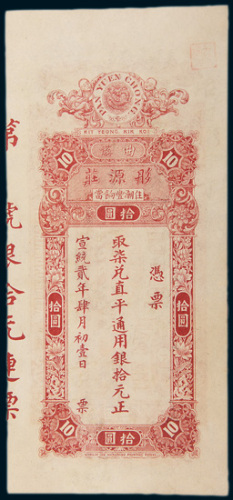 YUEN CHONG
KIT YEUNG KIM KOI
10
10
彤源莊
拾圓
憑票
取柒兌直平通用銀拾元正
宣統貳年肆月初壹日
票
拾圓
拾圓
第
號銀拾元連票
拾圓
10
10